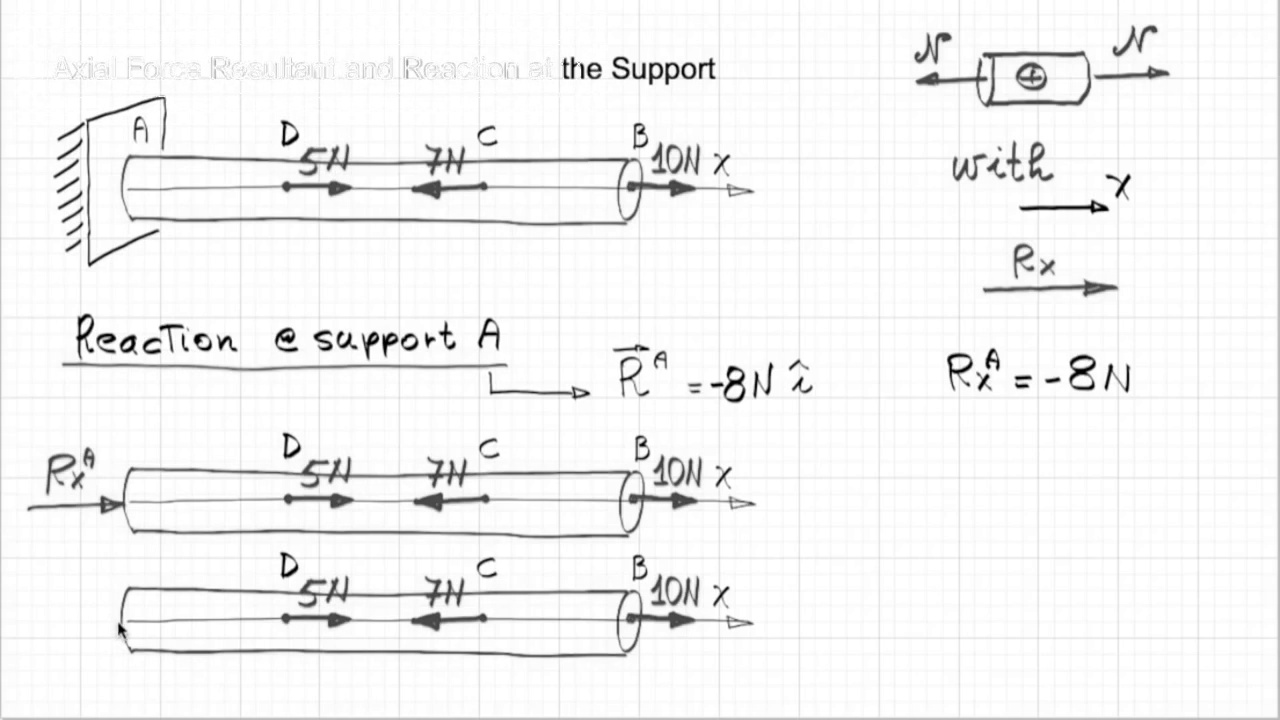 Axial Force Resultant and Reaction at the Support
N N
A D 5N 7N C B 10N x
with
x
Rx
Reaction @ support A
R^A = -8N î
Rx^A = -8N
Rx^A D 5N 7N C B 10N x
D 5N 7N C B 10N x